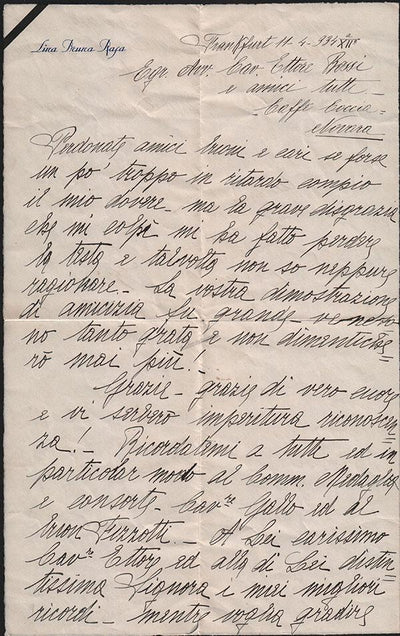 Lina Bruna Rasa
Frankfurt 11-4-934 XIIº
Egr. Avv. Cav. Ettore Rossi
e amici tutti -
Caffe Coccia -
Novara
Perdonate amici buoni e cari se forse
un po' troppo in ritardo compio
il mio dovere - ma la grave disgrazia
che mi colpì mi ha fatto perdere
la testa e talvolta non so neppure
ragionare - La vostra dimostrazione
di amicizia fu grande - ve ne so-
no tanto grata e non dimentiche=
rò mai più! -
Grazie - grazie di vero cuore
e vi serberò imperitura riconoscen
za! - Ricordatemi a tutti ed in
particolar modo al Comm.
e consorte - Cavre Gallo ed al
buon Fizzotti. - A Lei carissimo
Cavr Ettore ed alla di Lei distin
tissima Signora i miei migliori
ricordi - mentre voglia gradire